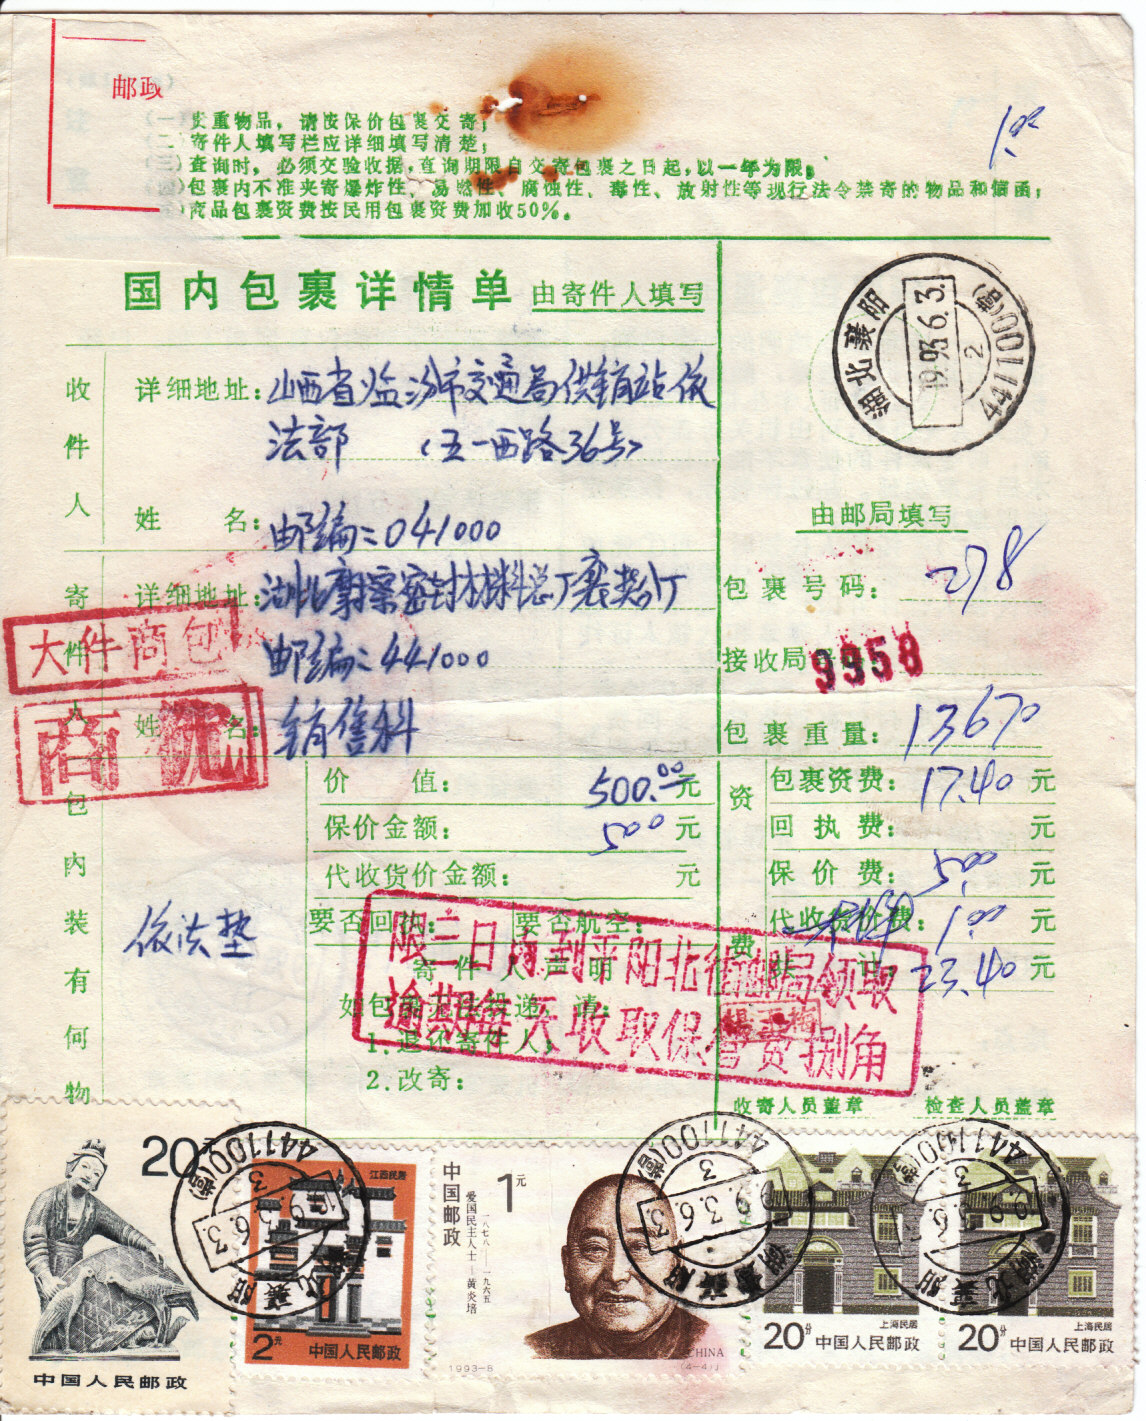 邮政
重物品，请按保价包裹交寄；
寄件人填写栏应详细填写清楚；
查询时，必须交验收据，查询期限自交寄包裹之日起，以一年为限；
包裹内不准夹寄爆炸性、易燃性、腐蚀性、毒性、放射性等现行法令禁寄的物品和信函；
商品包裹资费按民用包裹资费加收50%。
1.00
国内包裹详情单 由寄件人填写
湖北襄阳
1993.6.3.
2
441100(营)
收件人
详细地址：山西省临汾市交通局供销站依
法部 （五一西路36号）
姓 名：
邮编：041000
由邮局填写
寄件人
详细地址：湖北
密封材料总厂襄樊分厂
邮编：441000
姓 名：销售科
包裹号码：278
接收局号码
9958
包裹重量：13670
大件商包
商
包内装有何物
依法垫
价 值：500.00元
保价金额：500元
代收货价金额： 元
要否回执： 要否航空：
寄件人声明
如包裹无法投递，请：
1.退还寄件人；
2.改寄：
资费
包裹资费：17.40元
回执费： 元
保价费：5.00元
代收货价费：1.00元
共 计：23.40元
限三日内到平阳北街邮局领取
逾期每天收取保管费捌角
收寄人员盖章 检查人员盖章
20元
中国人民邮政
江西民居
2元
中国人民邮政
中国邮政
1元
爱国民主人士—黄炎培
一八七八——一九六五
1993-8
CHINA
(4-4)J
上海民居
20分 中国人民邮政
上海民居
20分 中国人民邮政
441100(营)
1993.6.3.
湖北襄阳
441100(营)
1993.6.3.
湖北襄阳
441100(营)
1993.6.3
湖北襄阳